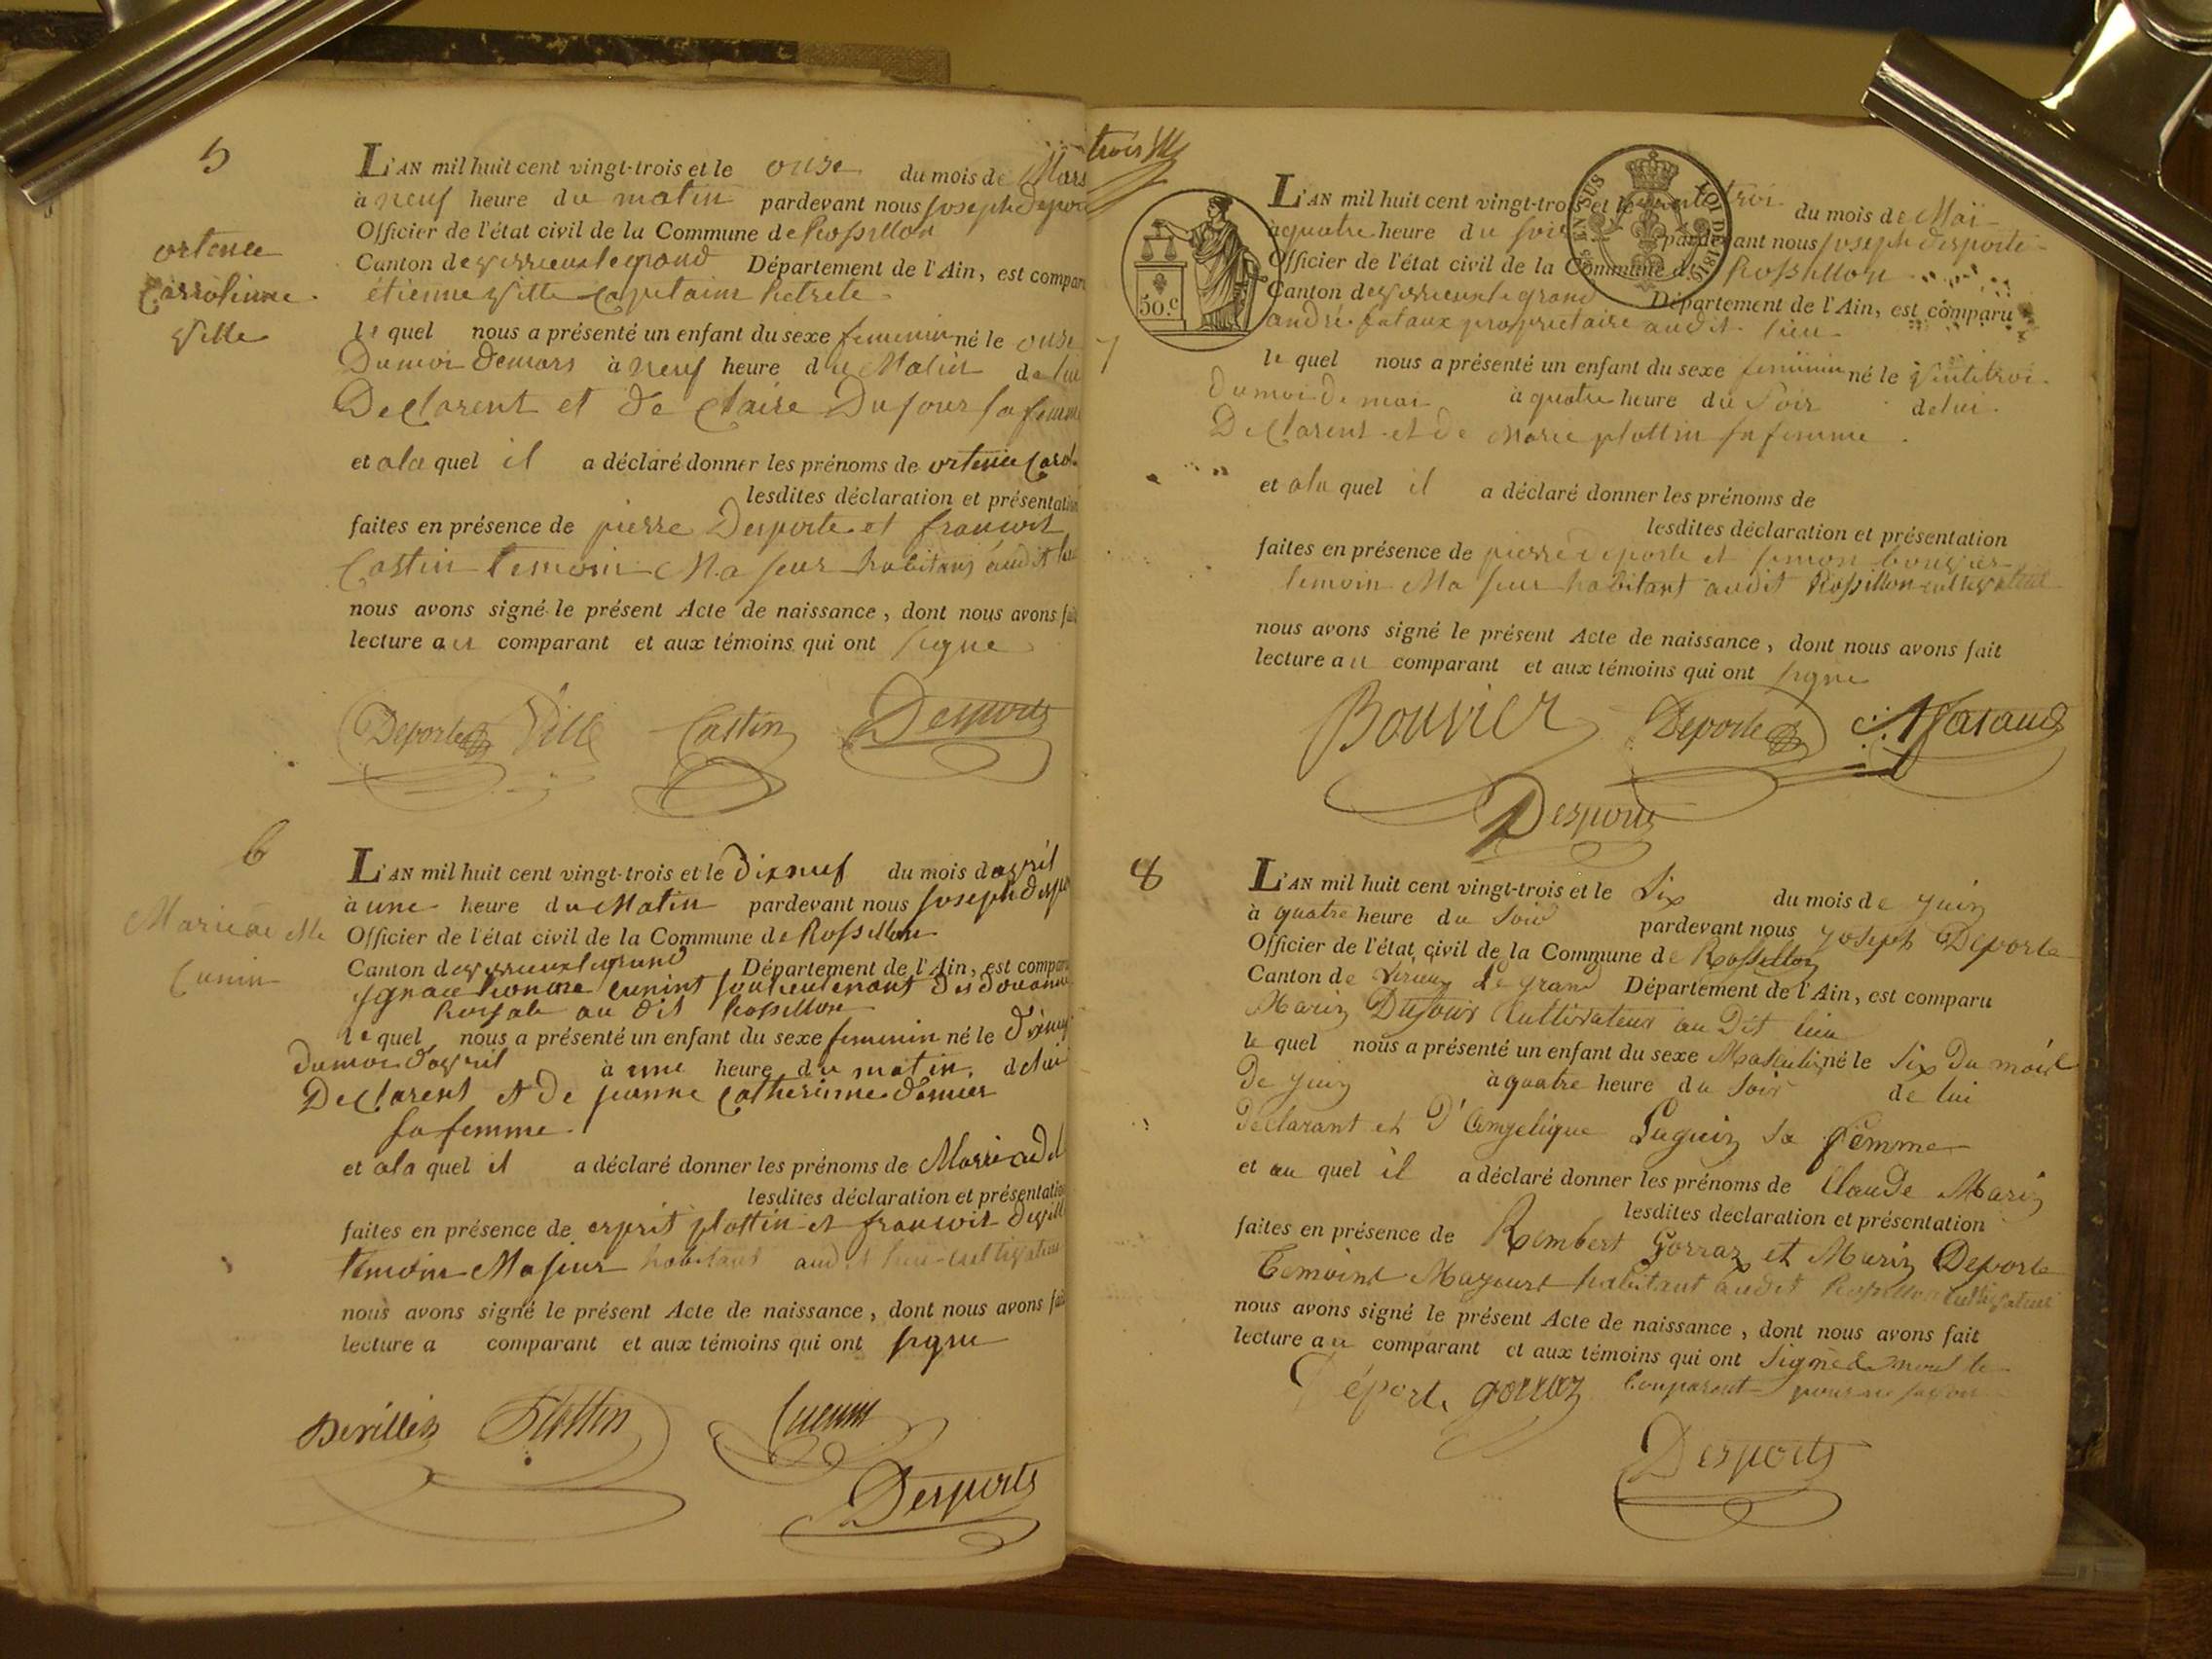 5
L'AN mil huit cent vingt-trois et le onse du mois de Mars
à neuf heure du matin pardevant nous joseph
Officier de l'état civil de la Commune de Rossillon
Canton de virieux le grand Département de l'Ain, est compar
étienne ville capitaine Retrete
ortence
Carrolinne
Ville
le quel nous a présenté un enfant du sexe feminin né le onse
Du moi de mars à neuf heure du Matin de lui
Declarent et de Claire Dufour sa femme
et a la quel il a déclaré donner les prénoms de ortence Carol
lesdites déclaration et présentation
faites en présence de pierre Desporte et francois
Castin temoin Majeur habitans audit lieu
nous avons signé le présent Acte de naissance, dont nous avons fait
lecture au comparant et aux témoins qui ont signe
Deporte Ville Castin Desporte
6
L'AN mil huit cent vingt-trois et le dixneuf du mois davril
à une heure du Matin pardevant nous joseph
Officier de l'état civil de la Commune de Rossillon
Canton de virrieux le grand Département de l'Ain, est compar
Cunin
soulieutenant des douanne
Royale au dit Rossillon
le quel nous a présenté un enfant du sexe feminin né le dixneuf
du moi davril à une heure du matin de lui
Declarent et de jeanne Catherinne
sa femme
et a la quel il a déclaré donner les prénoms de
lesdites déclaration et présentation
faites en présence de esprit plottin et francois
temoin Majeur habitans audit lieu cultivateur
nous avons signé le présent Acte de naissance, dont nous avons fait
lecture a comparant et aux témoins qui ont signe
Devillez Plottin Cunin
Desporte
trois
EN SUS
LOI DE 1816
50.c
7
L'AN mil huit cent vingt-trois et le vintetroi du mois de Maï
à quatre heure du soir pardevant nous joseph desporte
Officier de l'état civil de la Commune de Rossillon
Canton de virrieux le grand Département de l'Ain, est comparu
andré proprietaire audit lieu
le quel nous a présenté un enfant du sexe feminin né le vintetroi
du moi de mai à quatre heure du Soir de lui
Declarent et de Marie plottin sa femme
et a la quel il a déclaré donner les prénoms de
lesdites déclaration et présentation
faites en présence de pierre deporte et simon bouvier
temoin Majeur habitant audit Rossillon cultivateur
nous avons signé le présent Acte de naissance, dont nous avons fait
lecture au comparant et aux témoins qui ont signe
Bouvier Deporte
Desporte
8
L'AN mil huit cent vingt-trois et le Six du mois de juin
à quatre heure du Soir pardevant nous joseph Deporte
Officier de l'état civil de la Commune de Rossillon
Canton de Virieux le grand Département de l'Ain, est comparu
Marin Dufour Cultivateur au Dit lieu
le quel nous a présenté un enfant du sexe Masculin né le Six du mois
De juin à quatre heure du Soir de lui
declarant et D'Angelique sa femme
et au quel il a déclaré donner les prénoms de Claude Marin
lesdites déclaration et présentation
faites en présence de Rembert Gorraz et Marin Deporte
temoins Majeurs habitant audit Rossillon Cultivateur
nous avons signé le présent Acte de naissance, dont nous avons fait
lecture au comparant et aux témoins qui ont Signé
Déporte gorraz
Desporte